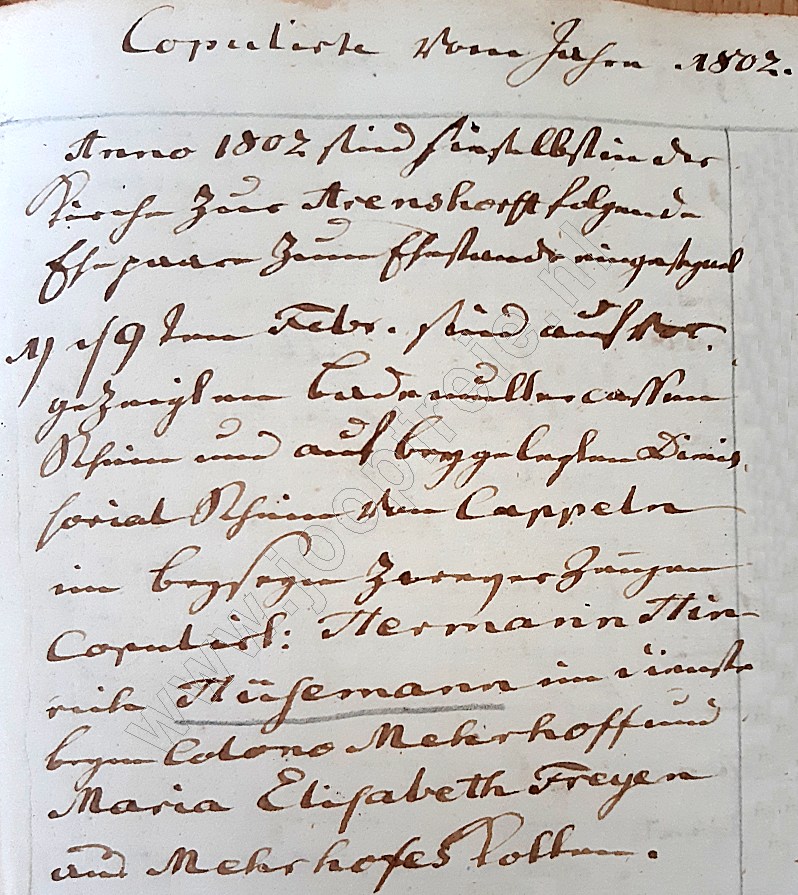 Copulirte vom Jahre 1802.
Anno 1802 sind hieselbst in der
Kirche zur Arenshorst folgende
Ehepaare zum Ehestande eingesegnet
1) d 19ten Febr. sind auf vor-
gezeigten cassen
Schein und auf beygelegten Dimis
sorial Schein von Cappeln
im beyseyn zweyer Zeugen
Copulirt: Hermann Hin-
rich Hüsemann im dienste
beym Colono Mehrhoff und
Maria Elisabeth Freyen
aus Mehrhofes Kotten.
www.joopfreie.nl